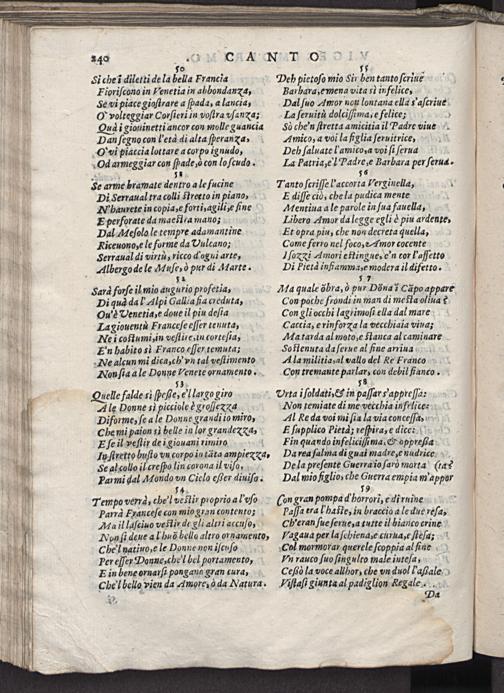 240 CANTO
50
Si che i diletti de la bella Francia
Fioriscono in Venetia in abbondanza,
Se vi piace giostrare a spada, a lancia,
O' volteggiar Corsieri in vostra vsanza;
Quà i giouinetti ancor con molle guancia
Dan segno con l'età di alta speranza,
O' vi piaccia lottare a corpo ignudo,
Od armeggiar con spade, ò con lo scudo.
51
Se arme bramate dentro a le fucine
Di Serraual tra colli stretto in piano,
N'haurete in copia, e forti, agili, e fine
E perforate da maestra mano;
Dal Mesolo le tempre adamantine
Riceuono, e le forme da Vulcano;
Serraual di virtù, ricco d'ogni arte,
Albergo de le Muse, ò pur di Marte.
52
Sarà forse il mio augurio profetia,
Di quà da l'Alpi Gallia fia creduta,
Qu'è Venetia, e doue il piu desia
La giouentù Francese esser tenuta,
Ne i costumi, in vestire, in cortesia,
E'n habito sì Franco esser temuta;
Ne alcun mi dica, ch'vn tal vestimento
Non sia a le Donne Venete ornamento.
53
Quelle falde sì spesse, e'l largo giro
A le Donne sì picciole è grossezza
Difforme, se a le Donne grandi io miro,
Che mi paion sì belle in lor grandezza,
E se il vestir de i giouani rimiro
In stretto busto vn corpo in tāta ampiezza,
Se al collo il crespo lin corona il viso,
Parmi dal Mondo vn Ciclo esser diuiso.
54
Tempo verrà, che'l vestir proprio a l'vso
Parrà Francese con mio gran contento;
Ma il lasciuo vestir de gli altri accuso,
Non si deue a l'huō bello altro ornamento,
Che'l natiuo, e le Donne non iscuso
Per esser Donne, che'l bel portamento,
E in bene ornarsi pongano gran cura,
Che'l bello vien da Amore, ò da Natura.
55
Deh pietoso mio Sir ben tanto scriue
Barbara, e mena vita sì infelice,
Dal suo Amor non lontana ella s'ascriue
La seruitù dolcissima, e felice;
Sò che'n stretta amicitia il Padre viue
Amico, a voi la figlia seruitrice,
Deh saluate l'amico, a voi si serua
La Patria, e'l Padre, e Barbara per serua.
56
Tanto scrisse l'accorta Verginella,
E disse ciò, che la pudica mente
Mentiua a le parole in sua fauella,
Libero Amor da legge egli è piu ardente,
Et opra piu, che non decreta quella,
Come ferro nel foco, e Amor cocente
I sozzi Amori estingue, e'n cor l'affetto
Di Pietà infiamma, e modera il difetto.
57
Ma quale ōbra, ò pur Dōna i Cāpo appare
Con poche frondi in man di mesta oliua?
Con gli occhi lagrimosi ella dal mare
Caccia, e rinforza la vecchiaia viua;
Ma tarda al moto, e stanca al caminare
Sostenuta da serue al fine arriua
A la militia, al vallo del Re Franco
Con tremante parlar, con debil fianco.
58
Vrta i soldati, & in passar s'appressa:
Non temiate di me vecchia infelice:
Al Re da voi mi sia la via concessa,
E supplico Pietà; respira, e dice:
Fin quando infelicissima, & oppressa
Da rea salma di guai madre, e nudrice
De la presente Guerra io sarò morta (ta?
Dal mio figlio, che Guerra empia m'appor
59
Con gran pompa d'horrori, e di ruine
Passa tra l'haste, in braccio a le due resa,
Ch'eran sue serue, a tutte il bianco crine
Vagaua per la schiena, e curua, e stesa;
Col mormorar querele scoppia al fine
Vn rauco suo singulto male intesa,
Cessò la voce allhor, che vn duol l'assale
Vistasi giunta al padiglion Regale.
Da